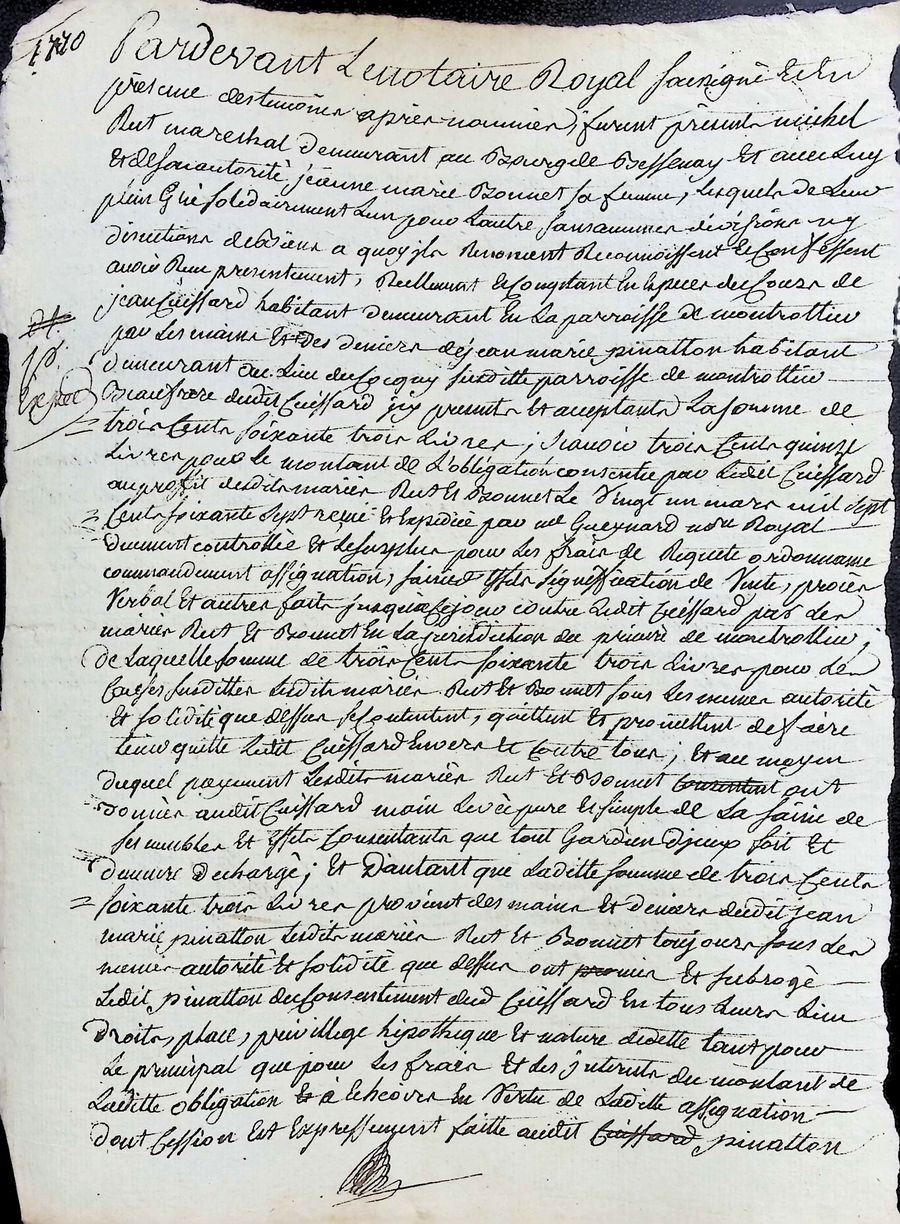 1770
Pardevant Le notaire Royal soussigné Et En
presence des temoins après nommés, furent présents michel
Rut marechal demeurant au Bourg de Bessenay Et avec Luy
Et de son autorité jeanne marie Bonnet sa femme, Lesquels de Leur
plein Gré solidairement L'un pour L'autre sans aucunes divisions ny
directions de Biens a quoy ils Renoncent Reconnoissent Et Confessent
avoir Reçu presentement, Reellement Et Comptant En Especes du Cours de
jean Cuissard habitant demeurant En La parroisse de montrottier
par Les mains Et des deniers de jean marie pinatton habitant
demeurant au Lieu du Cocquy susditte parroisse de montrottier
Beaufrere dudit Cuissard icy presents Et aceptants La somme de
trois Cents soixante trois Livres ; sçavoir trois Cents quinze
Livres pour le montant de L'obligation consentie par Ledit Cuissard
au profit desdits mariés Rut Et Bonnet Le Vingt un mars mil sept
Cents soixante sept reçue Et Expediée par me Gueynard nore Royal
duement controllée Et Le surplus pour Les frais de Requete ordonnance
commandement assignation, saisies Effets signiffication de Vente, procès
Verbal Et autres faits jusqu'a Ce jour contre Ledit Cuissard par Les
mariés Rut Et Bonnet En La jurisdiction du prieuré de montrottier,
de Laquelle somme de trois Cents soixante trois Livres pour Les
Causes susdittes Lesdits mariés Rut Et Bonnet sous Les memes autorité
Et solidité que dessus se Contentent, quittent Et promettent de faire
tenir quitte Ledit Cuissard Envers Et Contre tous ; Et au moyen
duquel payement Lesdits mariés Rut Et Bonnet consentent ont
donnés audit Cuissard main Levée pure Et simple de La saisie de
ses meubles Et Effets Consentants que tout Gardien D'iceux soit Et
demeure dechargé ; Et D'autant que Laditte somme de trois Cents
soixante trois Livres provient des mains Et deniers dudit jean
marie pinatton Lesdits mariés Rut Et Bonnet toujours sous Les
memes autorité Et solidité que dessus ont Et subrogé
Ledit pinatton du Consentement dud Cuissard En tous Leurs Lieu
droits, place, privillege hipothique Et nature dedette tant pour
Le principal que pour Les frais Et Les interets du montant de
Laditte obligation Et à Echeoirs En Vertu de Laditte assignation
dont Cession Est Expressement faitte audit Cuissard pinatton